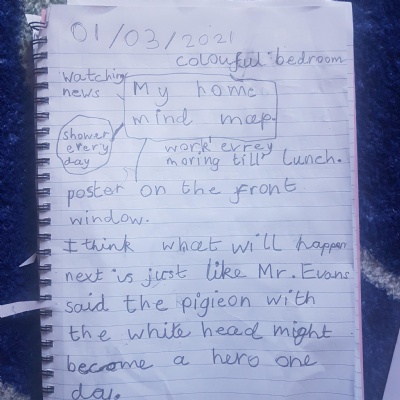 01/03/2021
colourful bedroom
Watching
news
My home
mind map.
shower
every
day
work errey
moring till lunch.
poster on the front
window.
I think what will happen
next is just like Mr. Evans
said the pigieon with
the white head might
become a hero one
day.